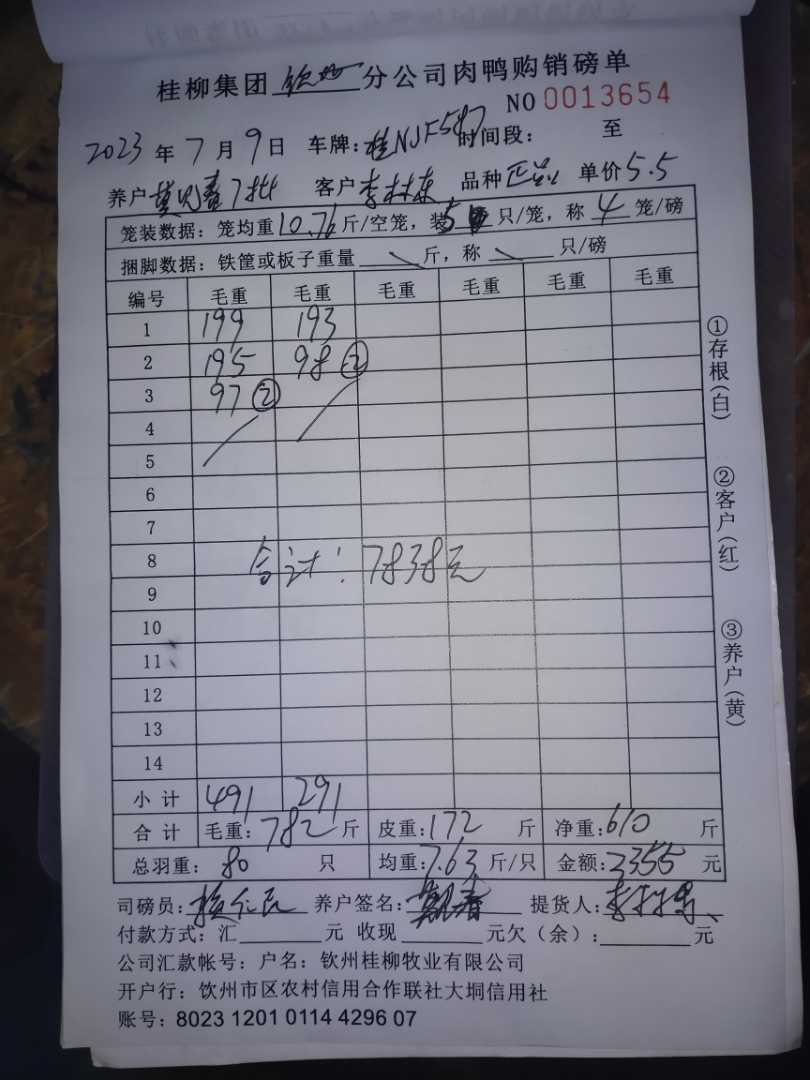 桂柳集团 钦州 分公司肉鸭购销磅单
NO 0013654
2023 年 7 月 9 日 车牌:桂NJF587 时间段: 至
养户 客户 李村东 品种 单价 5.5
笼装数据:笼均重 10.76 斤/空笼,装 5 只/笼,称 4 笼/磅
捆脚数据:铁筐或板子重量 \ 斤,称 \ 只/磅
编号 毛重 毛重 毛重 毛重 毛重 毛重
1 199 193
2 195 98②
3 97②
4
5
6
7
8
合计:7838元
9
10
11
12
13
14
小计 491 291
合计 毛重:782 斤 皮重:172 斤 净重:610 斤
总羽重:80 只 均重:7.63 斤/只 金额:3355 元
司磅员: 养户签名: 提货人:
付款方式:汇 元 收现 元欠(余): 元
公司汇款帐号:户名:钦州桂柳牧业有限公司
开户行:饮州市区农村信用合作联社大垌信用社
账号:8023 1201 0114 4296 07
①存根(白)
②客户(红)
③养户(黄)